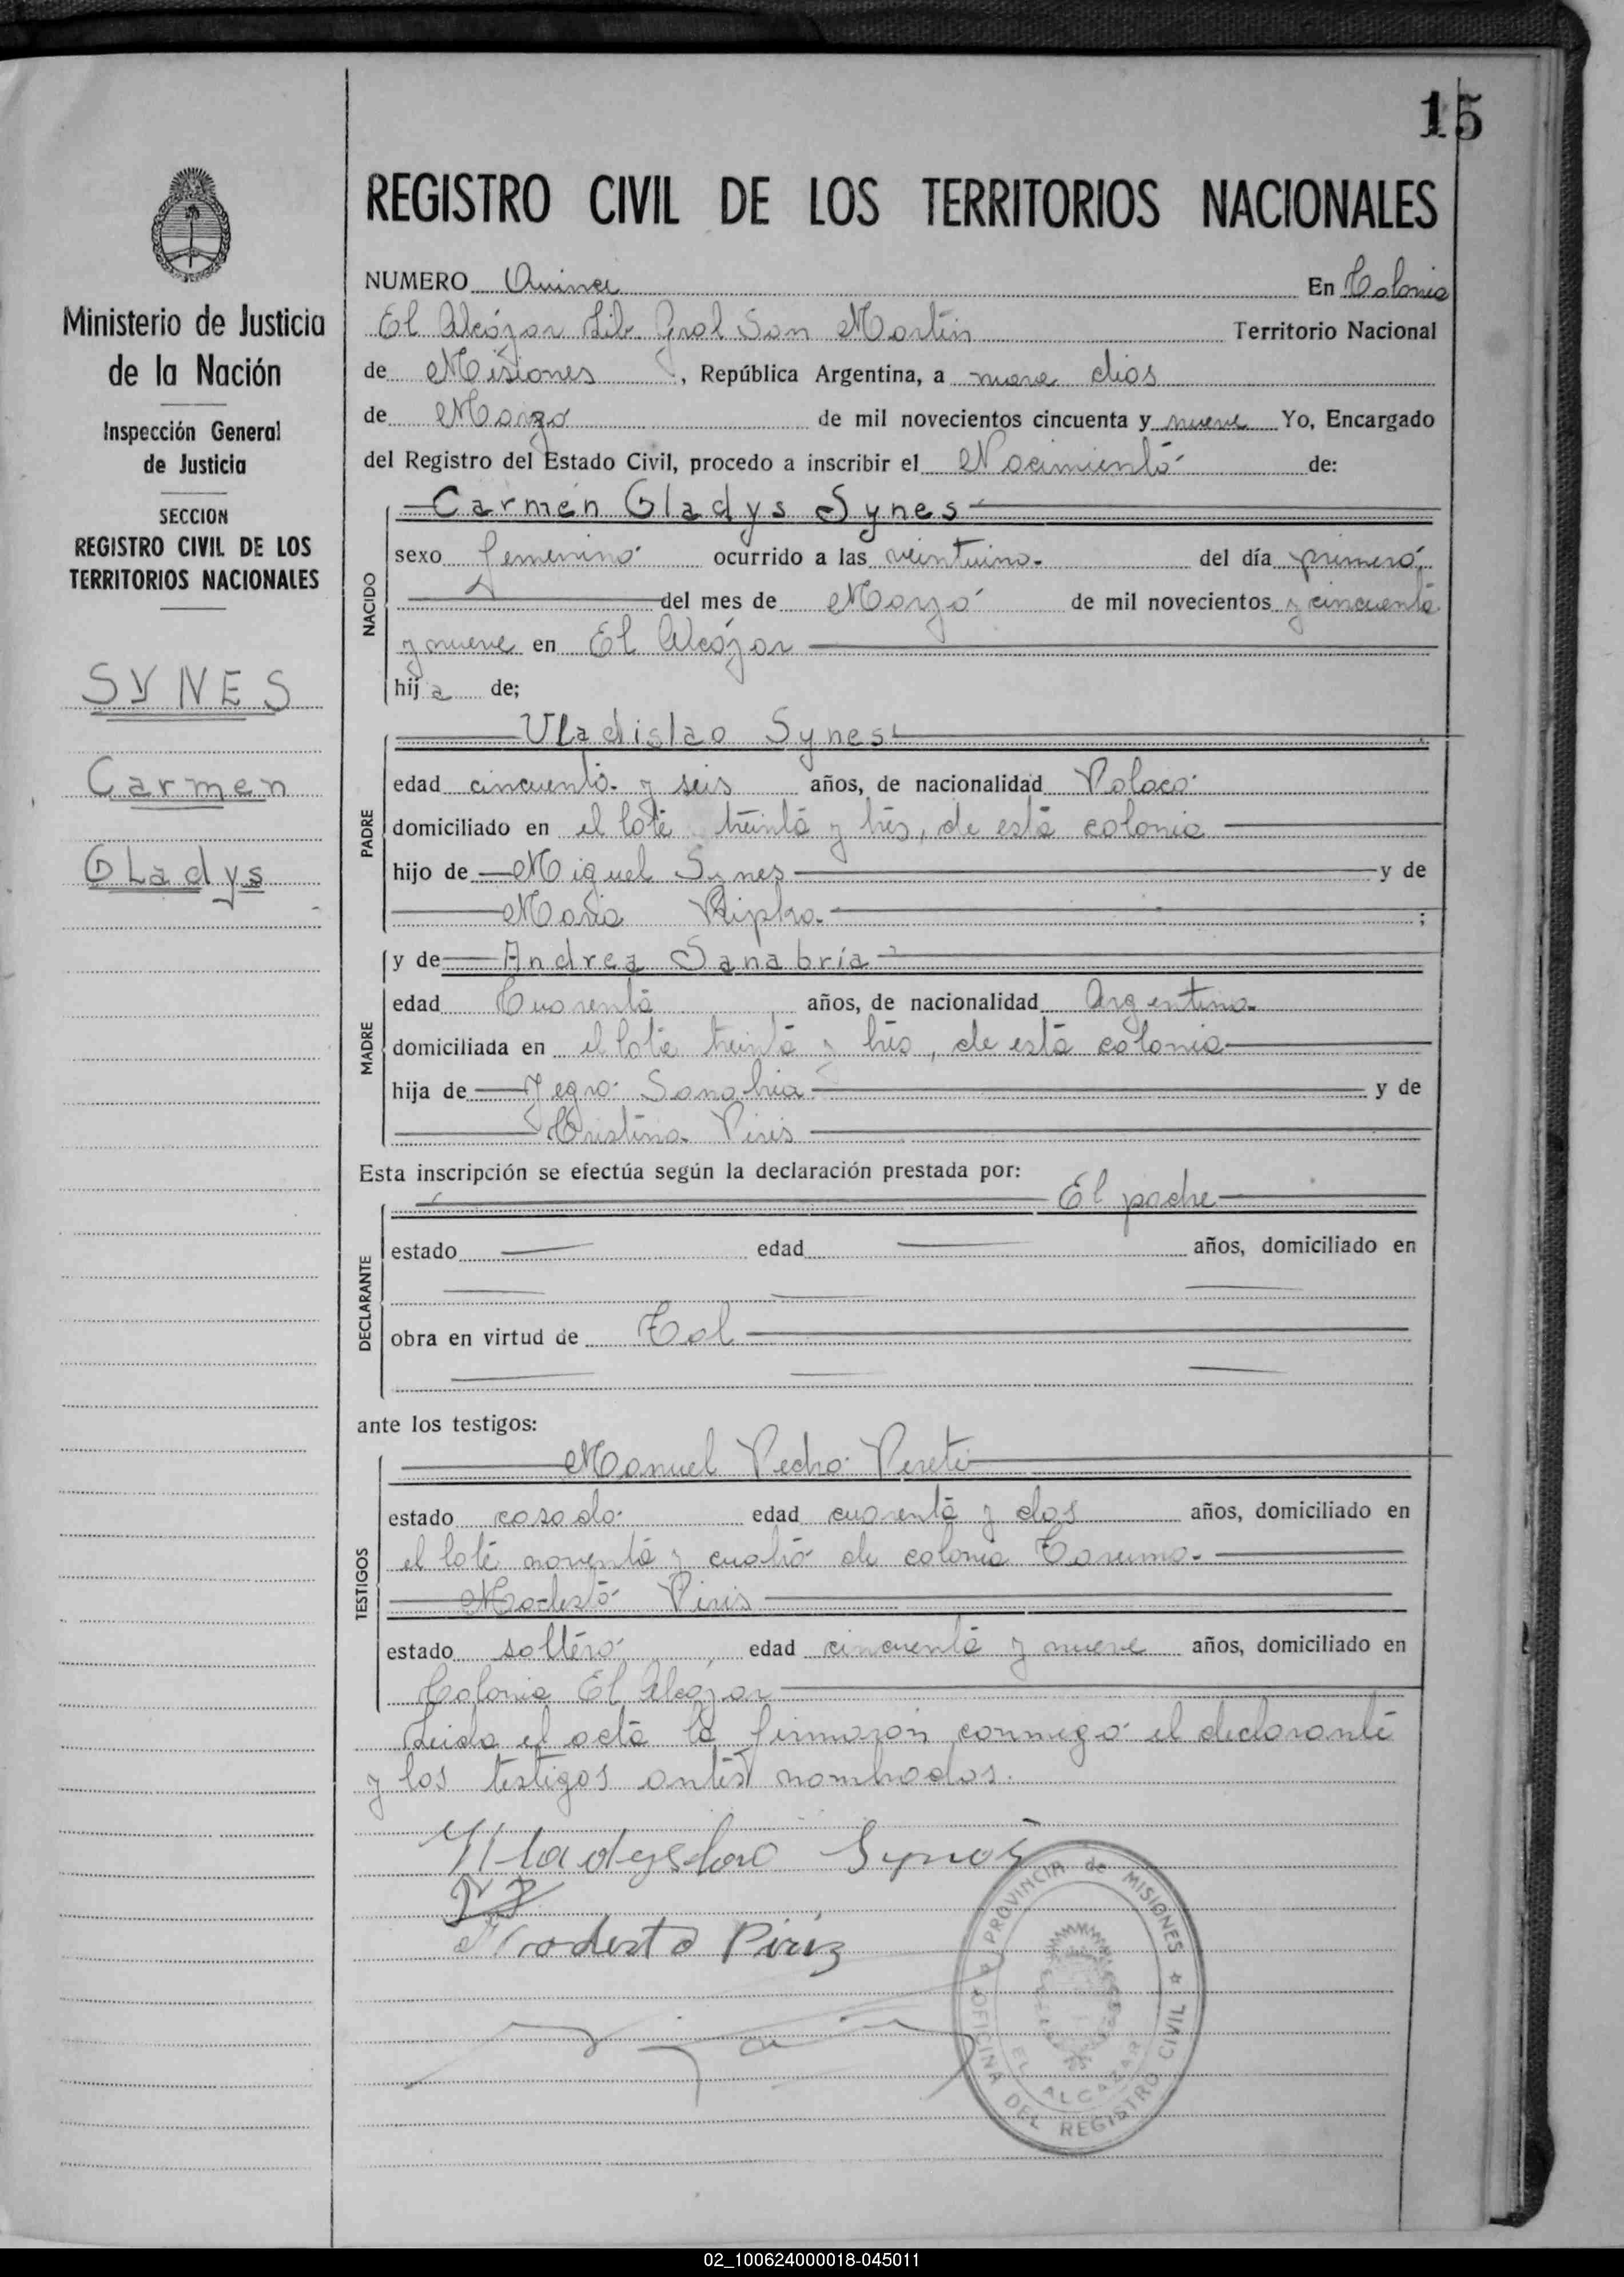 15
REGISTRO CIVIL DE LOS TERRITORIOS NACIONALES
Ministerio de Justicia
de la Nación
Inspección General
de Justicia
SECCION
REGISTRO CIVIL DE LOS
TERRITORIOS NACIONALES
SYNES
Carmen
Gladys
NUMERO Quince En Colonia
El Alcázar Lib. Gral San Martín Territorio Nacional
de Misiones, República Argentina, a nueve dias
de Marzo de mil novecientos cincuenta y nueve Yo, Encargado
del Registro del Estado Civil, procedo a inscribir el Nacimiento de:
NACIDO
Carmen Gladys Synes
sexo femenino ocurrido a las veintiuna del día primero
del mes de Marzo de mil novecientos y cincuenta
y nueve en El Alcázar
hija de;
PADRE
Vladislao Synes
edad cincuenta y seis años, de nacionalidad Polaco
domiciliado en el lote treinta y tres, de esta colonia
hijo de Miguel Synes y de
Maria ;
MADRE
y de Andrea Sanabria
edad Cuarenta años, de nacionalidad Argentina
domiciliada en el lote treinta y tres, de esta colonia
hija de Sanabria y de
Cristina Piris
Esta inscripción se efectúa según la declaración prestada por:
DECLARANTE
El padre
estado edad años, domiciliado en
obra en virtud de Tal
ante los testigos:
TESTIGOS
Manuel Pedro Pereti
estado casado edad cuarenta y dos años, domiciliado en
el lote noventa y cuatro de colonia
Modesto Piris
estado soltero edad cincuenta y nueve años, domiciliado en
Colonia El Alcazar
Leida el acta la firmaron conmigo el declarante
y los testigos antes nombrados.
Wladyslaw Synos
Modesto Piriz
PROVINCIA de MISIONES
OFICINA DEL REGISTRO CIVIL
EL ALCAZAR
02_100624000018-045011